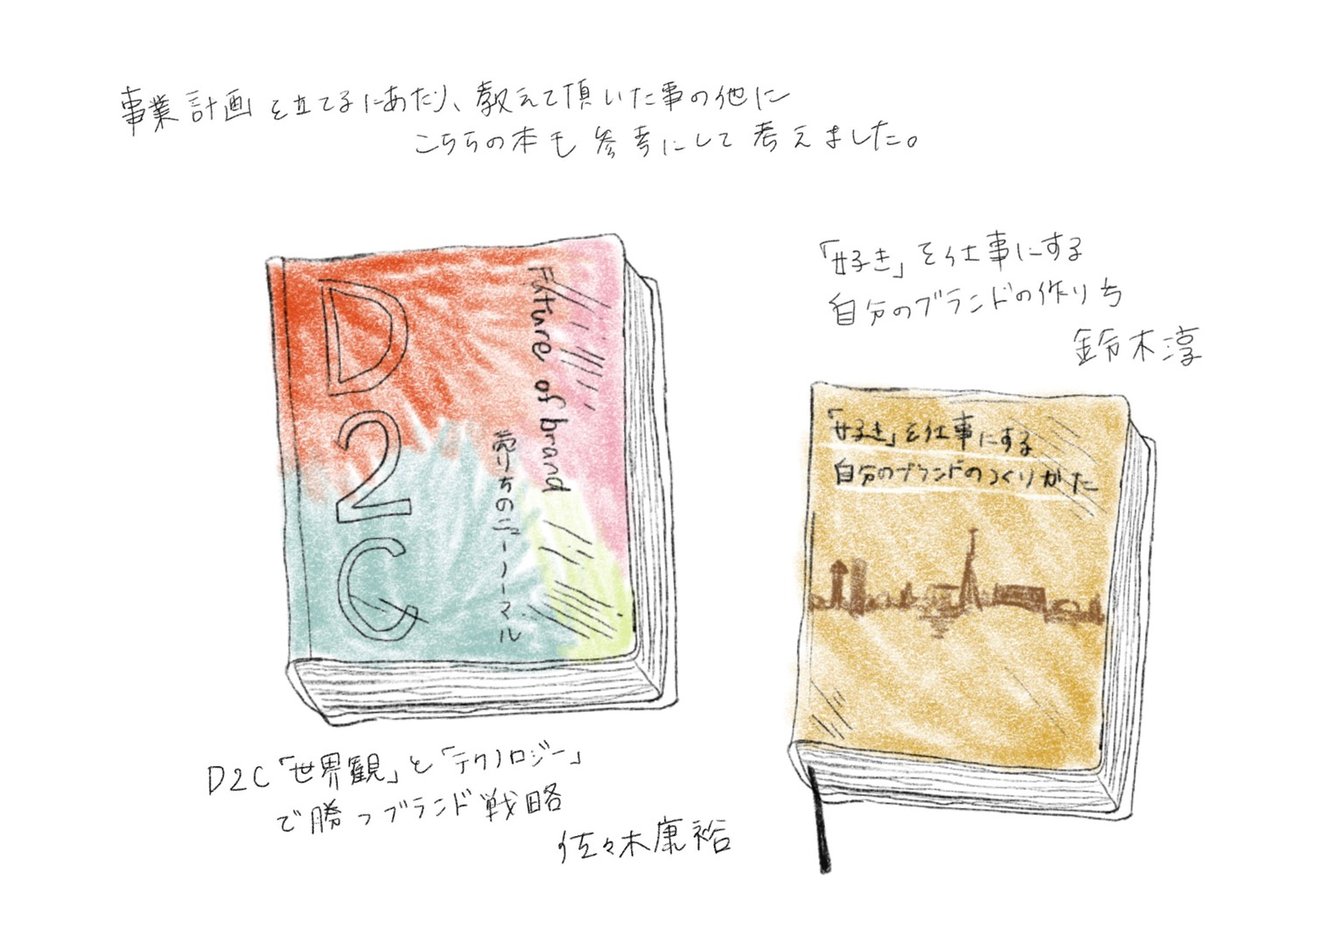 事業計画を立てるにあたり、教えて頂いた事の他に
こちらの本も参考にして考えました。
D2C
Future of brand
売り方のニューノーマル
D2C「世界観」と「テクノロジー」
で勝つブランド戦略
佐々木康裕
「好き」を仕事にする
自分のブランドの作り方
鈴木淳
「好き」を仕事にする
自分のブランドのつくりかた